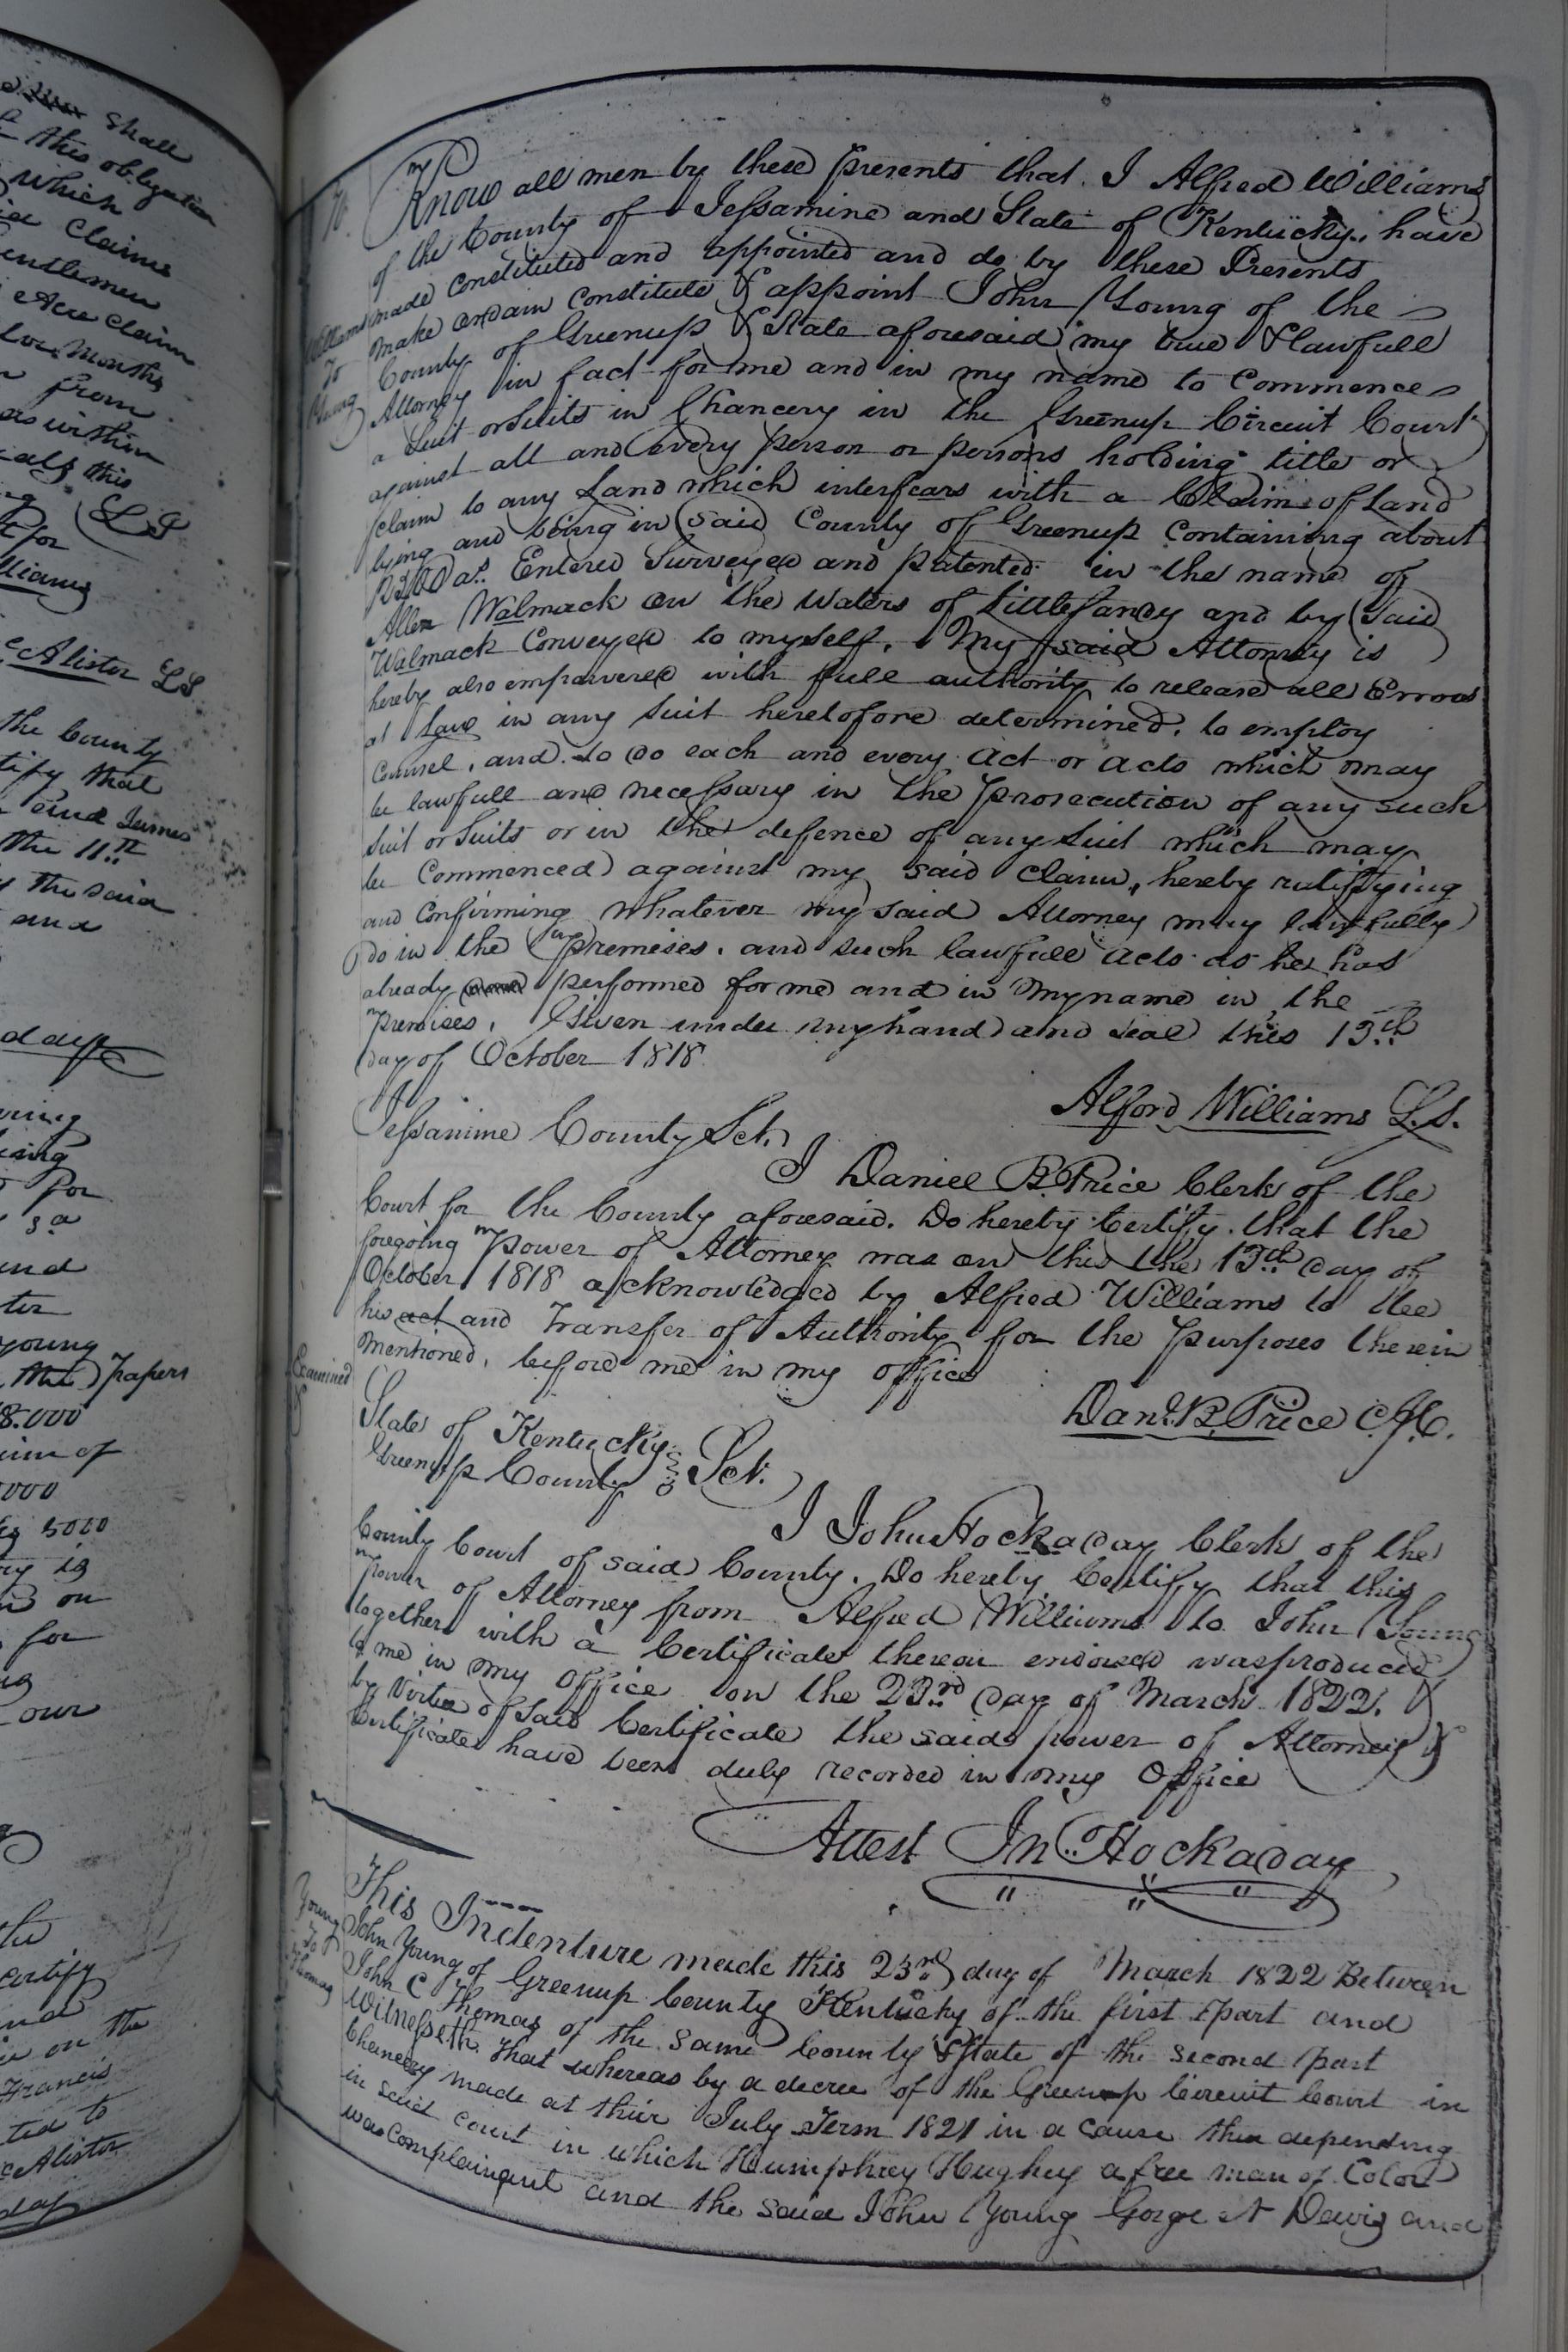 shall
this obligation
which
Claims
Gentlemen
Acre Claim
Months
from
as within
this
LS
for
lliams
cAlister LS
the County
tify that
James
the 11th
the said
and
ving
for
3d
and
ter
young
the papers
8.000
sum of
000
5000
is
on
for
our
the
certify
and
on the
Francis
ted to
cAlister
day
Know all men by these presents that I Alfred Williams
of the County of Jessamine and State of Kentucky, have
made constituted and appointed and do by these Presents
Williams
To
Young
make ordain constitute & appoint John Young of the
County of Greenup & State aforesaid my true & lawfull
Attorney in fact for me and in my name to Commence
a Suit or Suits in Chancery in the Greenup Circuit Court
against all and every person or persons holding title or
claim to any Land which interfears with a Claim of Land
lying and being in said County of Greenup Containing about
as. Entered Surveyed and patented in the name of
Allen Walmack on the waters of Little Sandy and by said
Walmack Conveyed to myself. My said Attorney is
hereby also empowered with full authority to release all Errors
at Law in any suit heretofore determined, to employ
Counsel, and to do each and every act or acts which may
be lawfull and necessary in the prosecution of any such
suit or suits or in the defence of any suit which may
be Commenced against my said claim, hereby ratifying
and Confirming whatever my said Attorney may lawfully
do in the premises, and such lawfull acts as he has
already performed for me and in my name in the
premises. Given under my hand and seal this 13th
day of October 1818
Alford Williams L.S.
Jessamine County Sct.
I Daniel B. Price Clerk of the
Court for the County aforesaid. Do hereby Certify that the
foregoing power of Attorney was on this the 13th day of
October 1818 acknowledged by Alfred Williams to be
his act and Transfer of Authority for the purposes therein
mentioned, before me in my office
Examined
Danl. B. Price C.J.C.
State of Kentucky
Greenup County Sct.
I John Hockaday Clerk of the
County Court of said County. Do hereby Certify that this
power of Attorney from Alfred Williams to John Young
together with a Certificate thereon endorsed was produced
to me in my office on the 23rd day of March 1822. &
by Virtue of said Certificate the said power of Attorney &
Certificate have been duly recorded in my Office
Attest Jn. Hockaday
This Indenture made this 23rd day of March 1822 Between
Young
To
Thomas
John Young of Greenup County Kentucky of the first part and
John C Thomas of the same County & State of the second part
Witnesseth. That whereas by a decree of the Greenup Circuit Court in
Chancery made at their July Term 1821 in a cause then depending
in said court in which Humphrey Hughey a free man of Color
was Complainant and the said John Young Gorge N Davis and